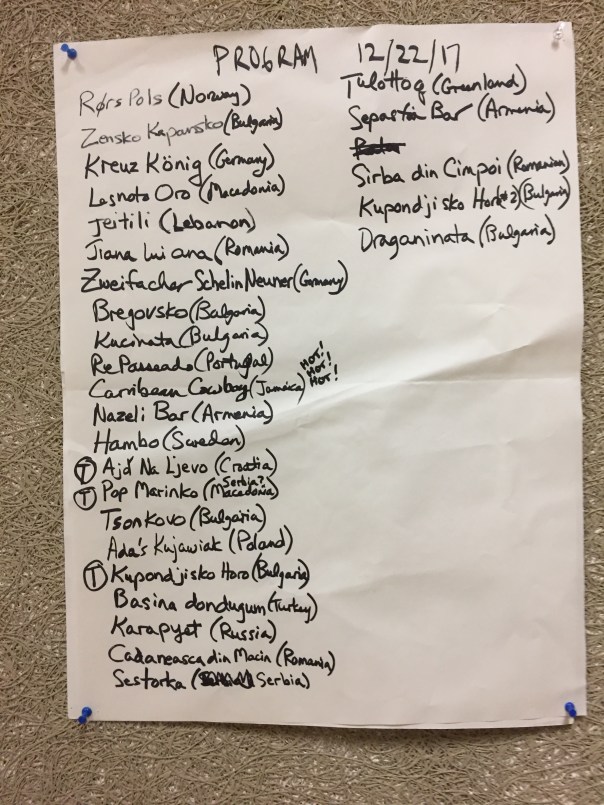 PROGRAM 12/22/17
Rørs Pols (Norway)
Zensko Kapansko (Bulgaria)
Kreuz König (Germany)
Lasnoto Oro (Macedonia)
Jeitili (Lebanon)
Jiana lui ana (Romania)
Zweifacher Schelin Neuner (Germany)
Bregovsko (Balgaria)
Kucinata (Bulgaria)
RePasseado (Portugal)
Carribean Cowboy (Jamaica) HOT! HOT! HOT!
Nazeli Bar (Armenia)
Hambo (Sweden)
T Ajd Na Ljevo (Croatia)
T Pop Marinko (Macedonia) Serbia?
Tsonkovo (Bulgaria)
Ada's Kujawiak (Poland)
T Kupondjisko Horo (Bulgaria)
Basina dondugum (Turkey)
Karapyet (Russia)
Cadaneasca din Macin (Romania)
Sestorka (Serbia)
Tulottog (Greenland)
Sepastia Bar (Armenia)
Sirba din Cimpoi (Romanian)
Kupondjisko Horo #2 (Bulgaria)
Draganinata (Bulgaria)